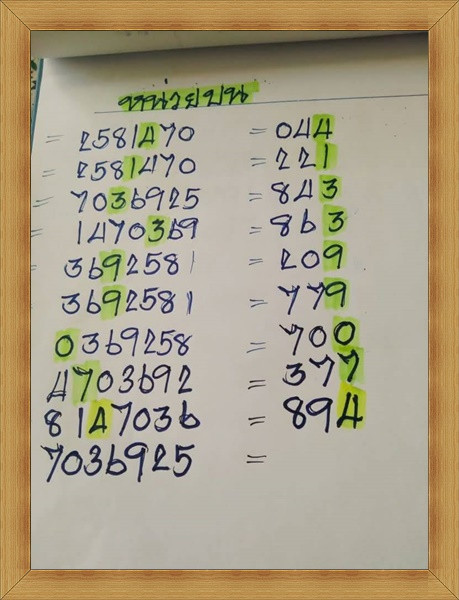 หน่วยบน
= 2581470 = 044
= 2581470 = 221
= 7036925 = 843
= 1470369 = 863
= 3692581 = 209
3692581 = 779
0369258 = 700
4703692 = 377
8147036 = 894
7036925 =